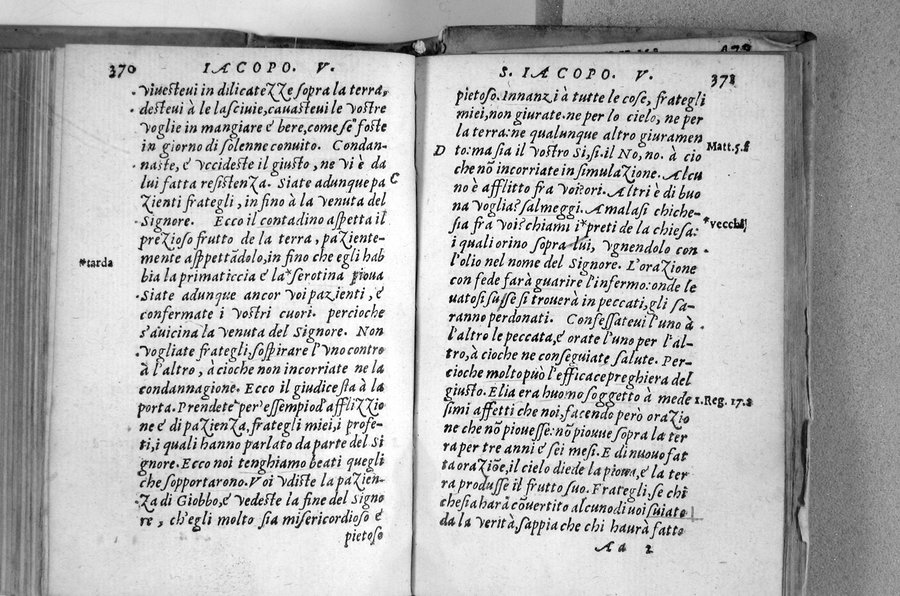 370 IACOPO. V.
viuesteui in dilicatezze sopra la terra,
desteui à le lasciuie, cauasteui le vostre
voglie in mangiare e bere, come se foste
in giorno di solenne conuito. Condan-
naste, e vccideste il giusto, ne vi è da
lui fatta resistenza. Siate adunque pa
C
zienti frategli, in fino à la venuta del
Signore. Ecco il contadino aspetta il
prezioso frutto de la terra, paziente-
mente aspettàdolo, in fino che egli hab
*tarda
bia la primaticcia e la *serotina piova
Siate adunque ancor voi pazienti, e
confermate i vostri cuori. percioche
s'auicina la venuta del Signore. Non
vogliate frategli, sospirare l'vno contro
à l'altro, à cioche non incorriate ne la
condannagione. Ecco il giudice sta à la
porta. Prendete per essempio d'afflizzio
ne e di pazienza, frategli miei, i profe-
ti, i quali hanno parlato da parte del Si
gnore. Ecco noi tenghiamo beati quegli
che sopportarono. Voi vdiste la pazien-
za di Giobbo, e vedeste la fine del Signo
re, ch'egli molto sia misericordioso e
pietoso
S. IACOPO. V. 371
pietoso. Innanzi à tutte le cose, frategli
miei, non giurate. ne per lo cielo, ne per
la terra: ne qualunque altro giuramen
Matt. 5. f
D
to: ma sia il vostro Si, si. il No, no. à cio
che nõ incorriate in simulazione. Alcu
no è afflitto fra voi? ori. Altri è di buo
na voglia? salmeggi. Amalasi chiche-
sia fra voi? chiami i *preti de la chiesa:
*vecchij
i quali orino sopra lui, vgnendolo con
l'olio nel nome del Signore. L'orazione
con fede farà guarire l'infermo: onde le
uatosi susse si trouerà in peccati, gli sa-
ranno perdonati. Confessateui l'uno à
l'altro le peccata, e orate l'uno per l'al-
tro, à cioche ne conseguiate salute. Per-
cioche molto può l'efficace preghiera del
giusto. Elia era huomo soggetto à mede
1. Reg. 17. a
simi affetti che noi, facendo però orazio
ne che nõ piouesse: nõ piouue sopra la ter
ra per tre anni e sei mesi. E di nuouo fat
ta oraziõe, il cielo diede la piova, e la ter
ra produsse il frutto suo. Frategli, se chi
chesia harà cõuertito alcuno di uoi suiato
da la verità, sappia che chi haurà fatto
Aa 2